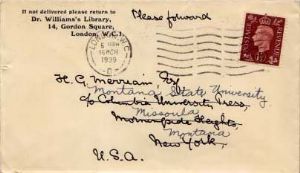 If not delivered please return to
Dr. Williams's Library,
14, Gordon Square,
London, W.C.1.
Please forward
LONDON. W.C.
16 MCH
1939
POSTAGE
H. G. Merriam, Esq
Montana State University
c/o Columbia University Press,
Missoula
Morningside Heights,
Montana
New York,
U.S.A.